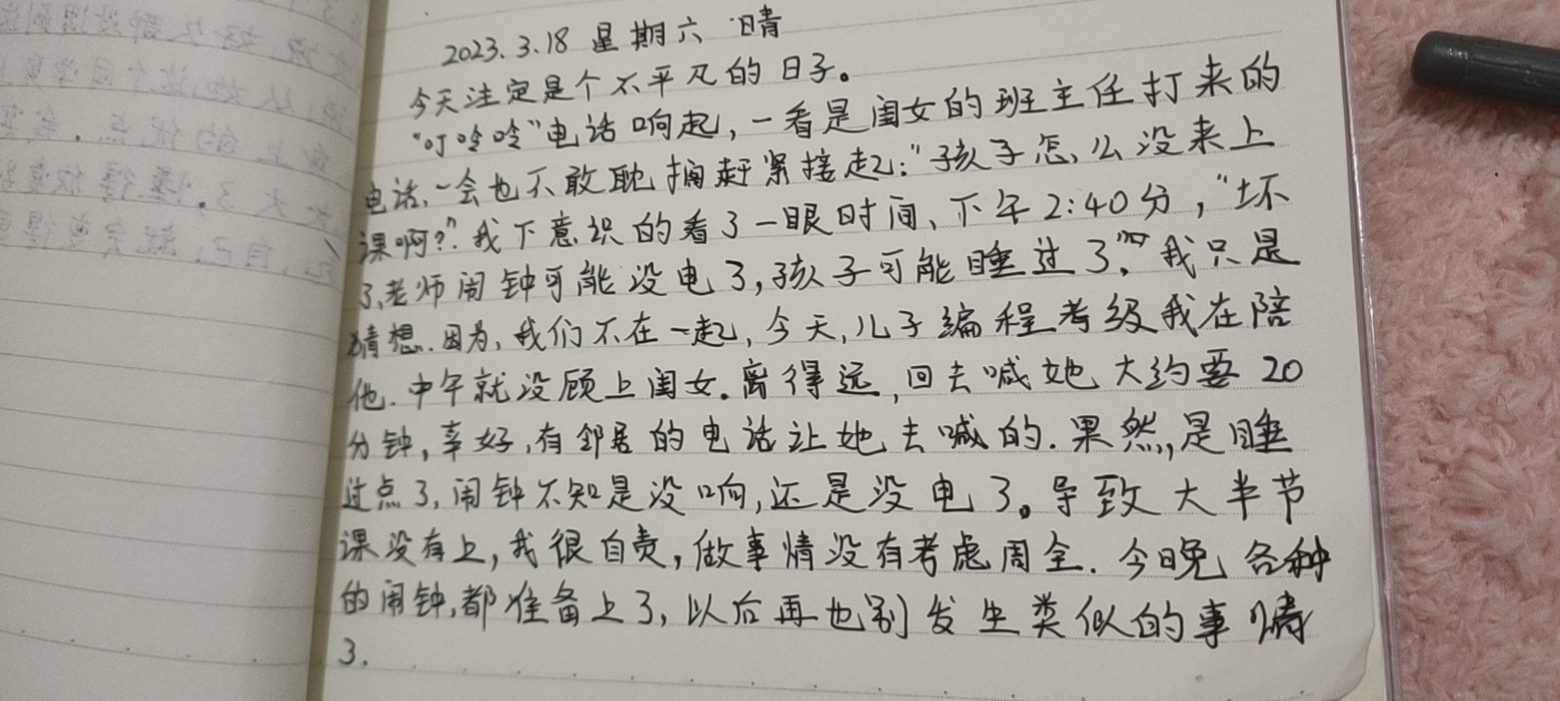 2023.3.18 星期六 晴
今天注定是个不平凡的日子。
“叮呤呤”电话响起,一看是闺女的班主任打来的
电话,一会也不敢耽搁赶紧接起:“孩子怎么没来上
课啊?”我下意识的看了一眼时间、下午2:40分,“坏
了,老师闹钟可能没电了,孩子可能睡过了。”我只是
猜想.因为,我们不在一起,今天,儿子编程考级我在陪
他.中午就没顾上闺女。离得远,回去喊她大约要20
分钟,幸好,有邻居的电话让她去喊的.果然,是睡
过点了,闹钟不知是没响,还是没电了。导致大半节
课没有上,我很自责,做事情没有考虑周全.今晚各种
的闹钟,都准备上了,以后再也别发生类似的事情
了.